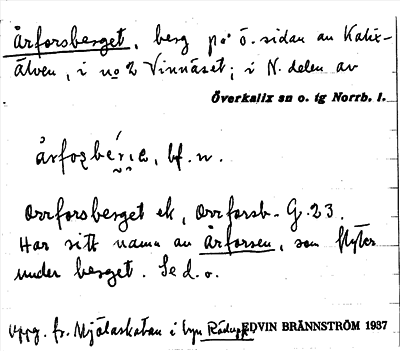 Årforsberget, berg på ö. sidan av Kalix-
älven, i no 2 Vinnäset; i N. delen av
Överkalix sn o. tg Norrb. l.
bf. n.
Orrforsberget ek, Orrforsb. G. 23.
Har sitt namn av Årforsen, som flyter
under berget. Se d. o.
Uppg. fr. Mjölaskatan i byn
EDVIN BRÄNNSTRÖM 1937